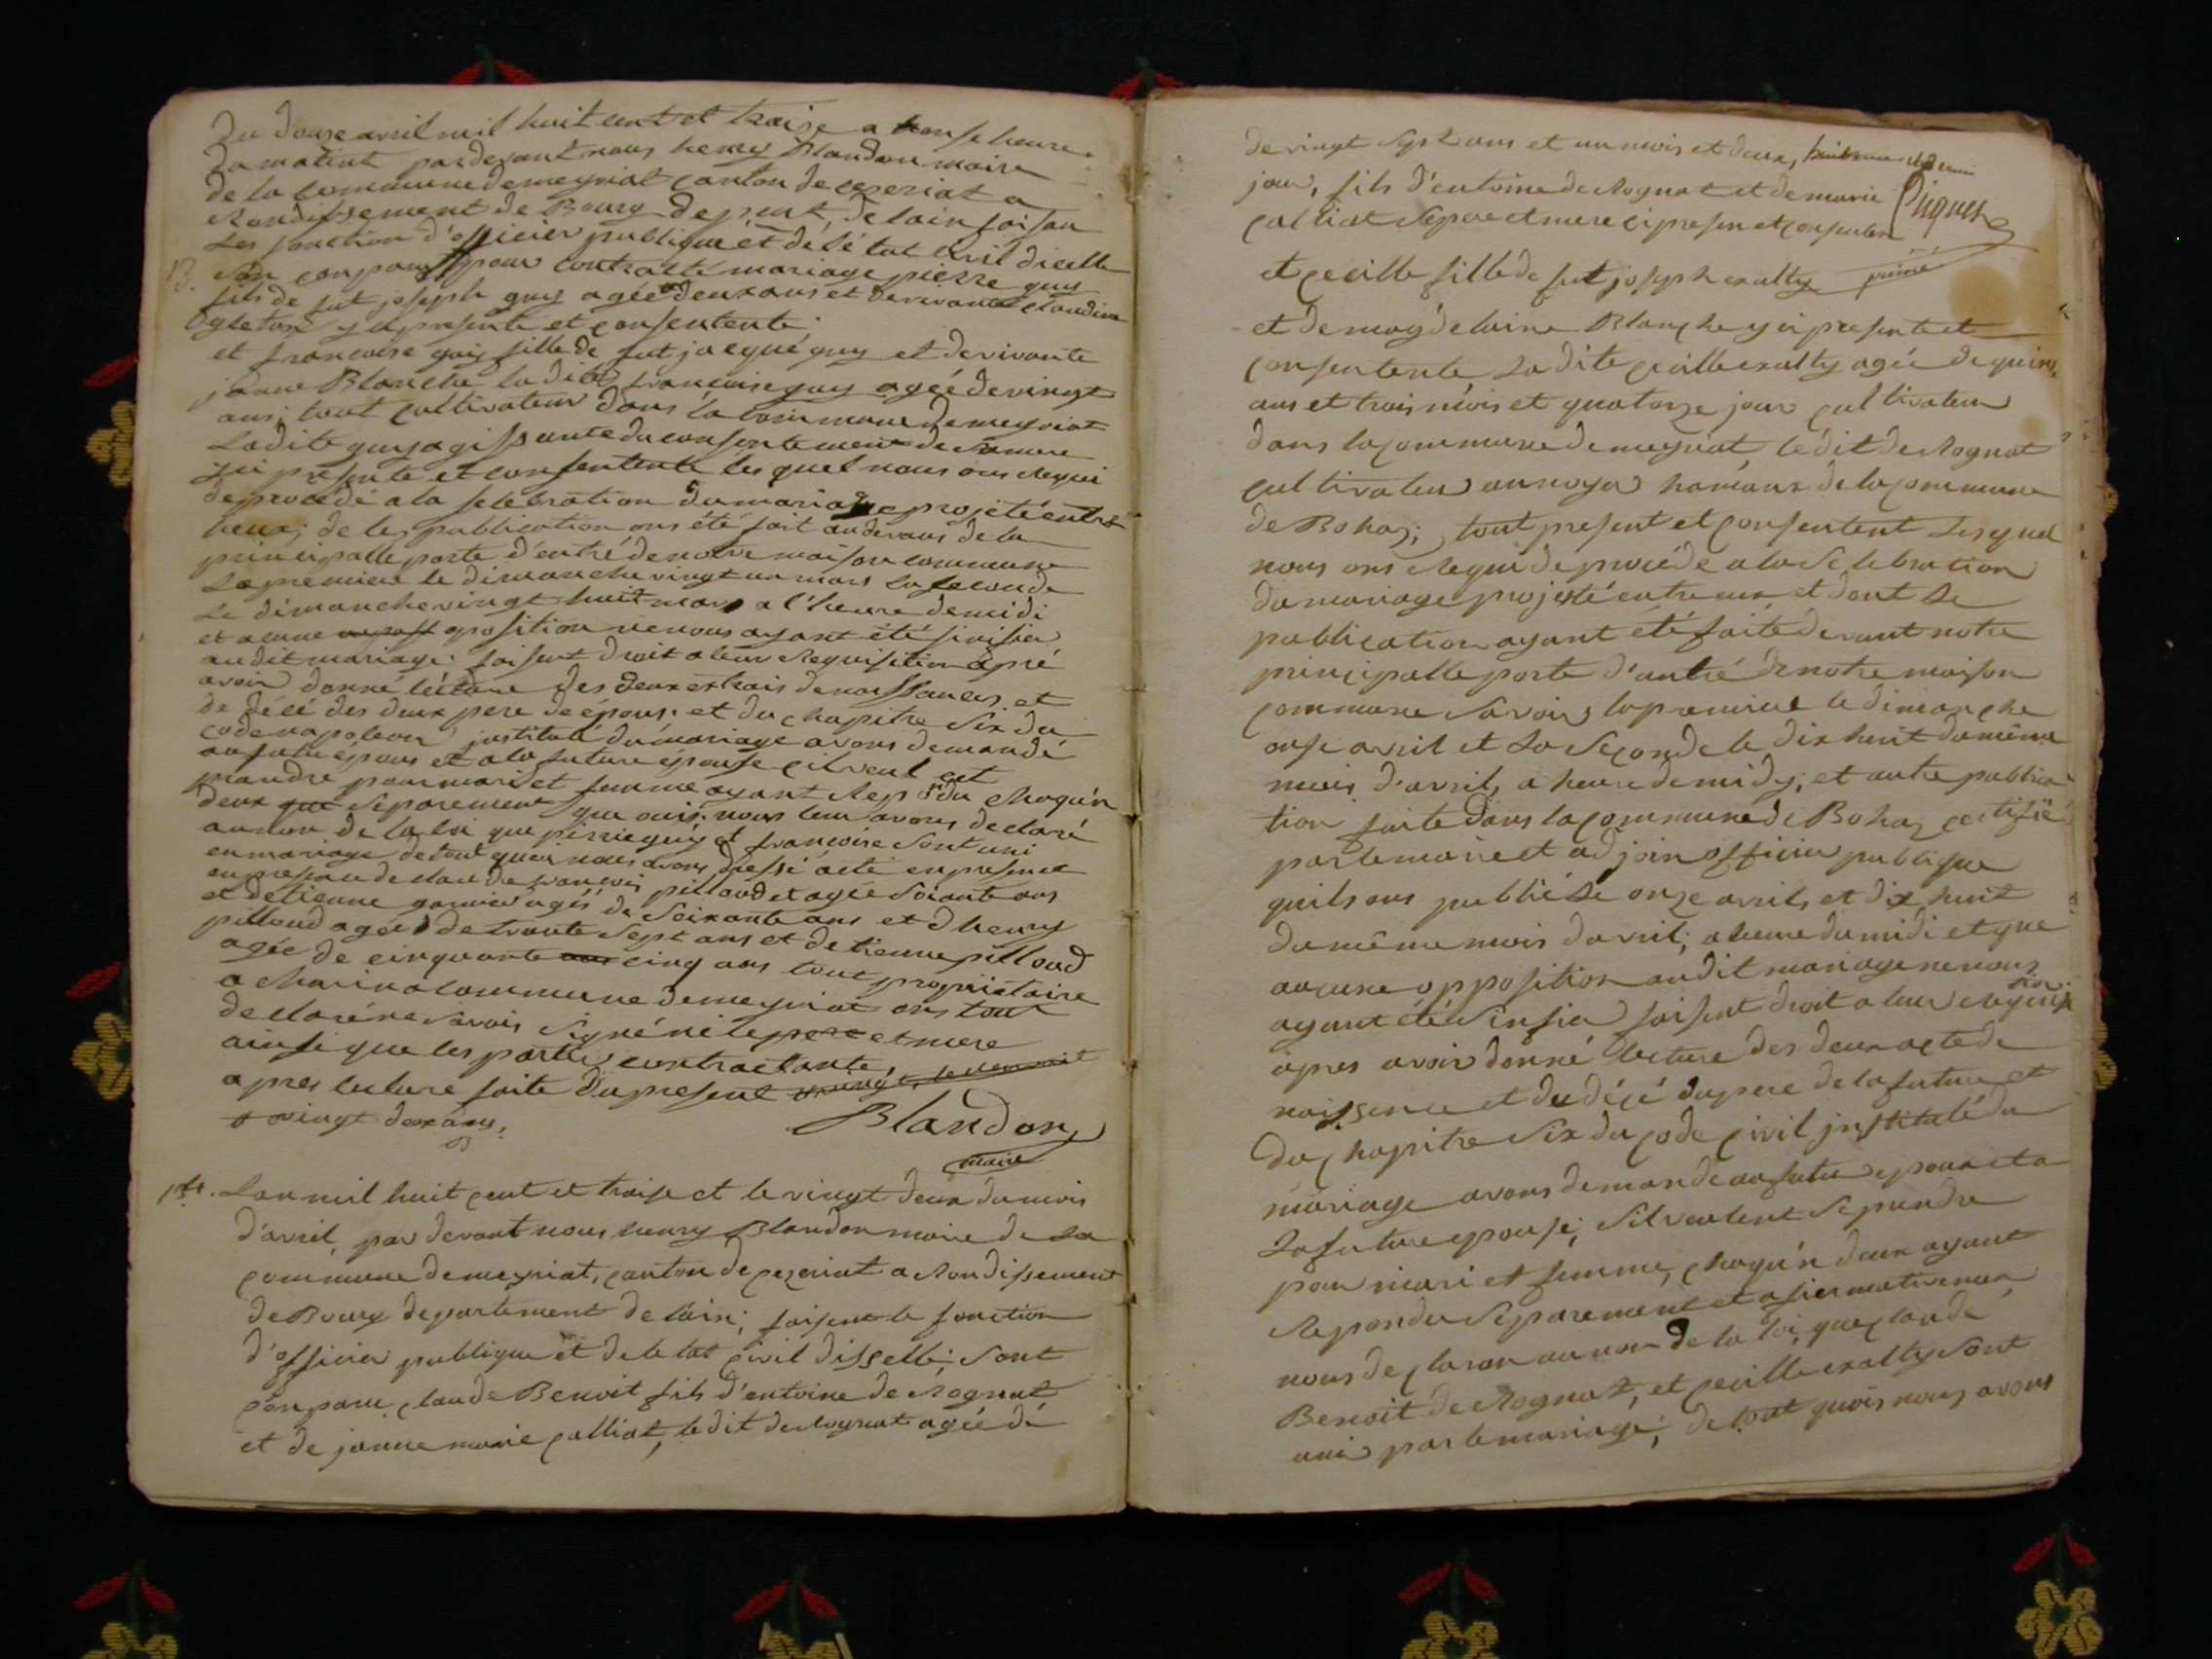 Du douze avril mil huit cent et traize a honse heure
Du matent pardevant nous henry Blandon maire
de la commune de meyriat canton de ceseriat a
Rondissement de Bourg depment de lain faisan
Les fonction d'officier publique et de le tat civil dicelle
13. son conparu pour contracté mariage pierre guy
fils de fut joseph guy agée deux ans et de vivante claudine
ogleton y ci presente et consentente
et francoise guy fille de fut jacque guy et de vivante
janne Blanche la dite francoise guy agée de vingt
ans; tout cultivateur dans la commune de meyriat
Ladite guy agissante du consentement de sa mere
yci presente et consentente les quel nous ons Requi
de procedé a la selebration du mariage projeté entre
heux; de les publication ons été fait au devans de la
principalle porte d'entré de notre maison commune
La premiere le dimanche vingt un mars La seconde
Le dimanche vingt huit mars a l'heure de midi
et aucune oposition ne nous ayant été sinifier
au dit mariage faisent droit a leur Requisition apré
avoir donné lecture des deux extrais de naissances et
de décé des deux pere de épous; et du chapitre six du
code napoleon jnstitulé du mariage avons demandé
au futur épous et a la future épouse cil veul cet
prandre pour mari et femme ayant Repondu chaqu'n
deux que separement que oui; nous leur avons declaré
au nom de la loi que pierre guy et francoise sont uni
en mariage de tout quoi nous avons dressé acte en presence
en presence de claude francois pilloud et agée soixante ans
et detienne garnier agés de soixante ans et d henry
pilloud agée de trante sept ans et detienne pilloud
agée de cinquante ans cinq ans tout propriétaire
a charin a commune de meyriat ons tout
declaré ne savois signé ni le pere et mere
ainsi que les partie contractante,
apres lecture faite du present
vingt deux ans,
Blandon
maire
14. Lan mil huit cent et traise et le vingt deux du mois
d'avril, par devant nous henry Blandon maire de La
commune de meyriat, canton de cezeriat a Rondissement
de Bourg departement de l'ain; faisent le fonction
d'officier publique et de le tat civil disselle; sont
con paru claude Benoit fils d'entoine de Rognat
et de janne marie calliat, le dit de Rognat agée de
de vingt sept ans et un mois et deux,
jour, fils d'entoine de Rognat et de marie
calliat se pere et mere ci presen et consenten
et cecille fille de fut joseph exalty
et de magdelaine Blanche y ci presente et
consentente, La dite cecille exalty agée de quinz
ans et trois mois et quatorze jour cultivateur
dans la commune de meyriat, le dit de Rognat
cultivateur au noyer hameaux de la commune
de Bohas; tout present et consentent Lesquel
nous ons Requi de procéde a la Selebration
du mariage projeté entre eux et dont Le
publication ayant été faite devant notre
principalle porte d'antré de notre maison
commune savoir, la premiere le dimanche
onse avril et La Seconde le dix huit du même
mois d'avril, a heure de midy; et autre publica
tion faite dans la commune de Bohas certifié
par le maire et adjoin officier publique
quils ons publié Le onze avril et dix huit
du même mois davril; a heure du midi et que
aucune opposition audit mariage ne nous
ayant été Sinfier faisent droit a leur Requisi
tion
apres avoir donné lecture des deux acte de
naissence et du décé du pere de la future et
du chapitre Six du code civil jnstitulé du
mariage avons demandé au futur epoux et a
La future epouse; Sil veulent Se prendre
pour mari et femme, chaqu'n deux ayant
Repondu Séparement et afiermativemen
nous declaron au nom de la loi que claude
Benoit de Rognat, et cecille exalty sont
uni par le mariage; de tout quois nous avons